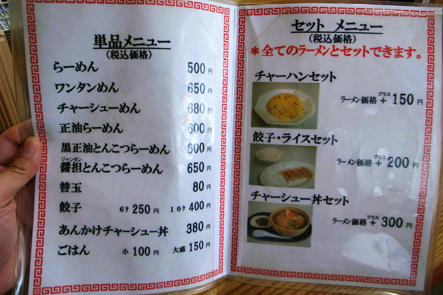 単品メニュー
(税込価格)
らーめん 500円
ワンタンめん 650円
チャーシューめん 680円
正油らーめん 600円
黒正油とんこつらーめん 600円
ジャンタン
醤担とんこつらーめん 650円
替玉 80円
餃子 6ヶ 250円 10ヶ 400円
あんかけチャーシュー丼 380円
ごはん 小 100円 大盛 150円
セット メニュー
(税込価格)
*全てのラーメンとセットできます。
チャーハンセット
プラス
ラーメン価格 + 150円
餃子・ライスセット
プラス
ラーメン価格 + 200円
チャーシュー丼セット
プラス
ラーメン価格 + 300円